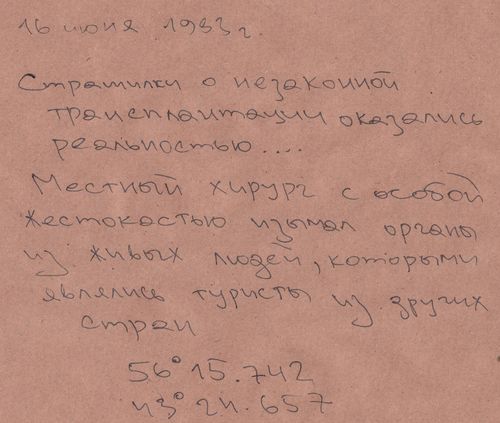 16 июня 1933 г.
Страшилки о незаконной
трансплантации оказались
реальностью ....
Местный хирург с особой
жестокостью изымал органы
из живых людей, которыми
являлись туристы из других
стран
56° 15.742
43° 24.657